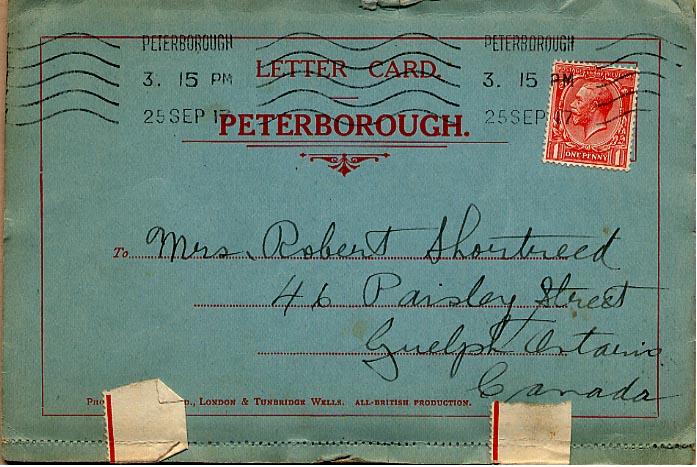 PETERBOROUGH PETERBOROUGH
3. 15 PM 3. 15 PM
25 SEP 17 25 SEP 17
LETTER CARD.
PETERBOROUGH.
ONE PENNY
1 1
To Mrs. Robert Shortreed
46 Paisley Street
Guelph Ontario
Canada
D., LONDON & TUNBRIDGE WELLS. ALL-BRITISH PRODUCTION.